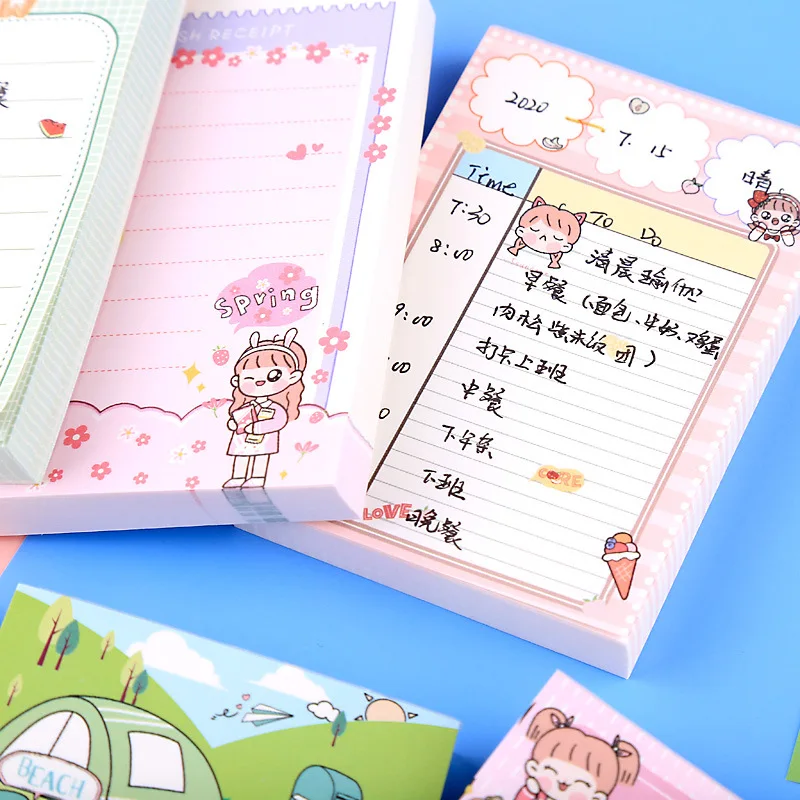 SH RECEIPT
spring
2020
7. 15
晴
Time
To Do
7:30
清晨瑜伽
8:00
早餐 (面包、牛奶、鸡蛋
肉松紫米饭团)
9:00
打卡上班
:00
中餐
0
下午茶
下班
CORE
LOVE
晚餐
BEACH